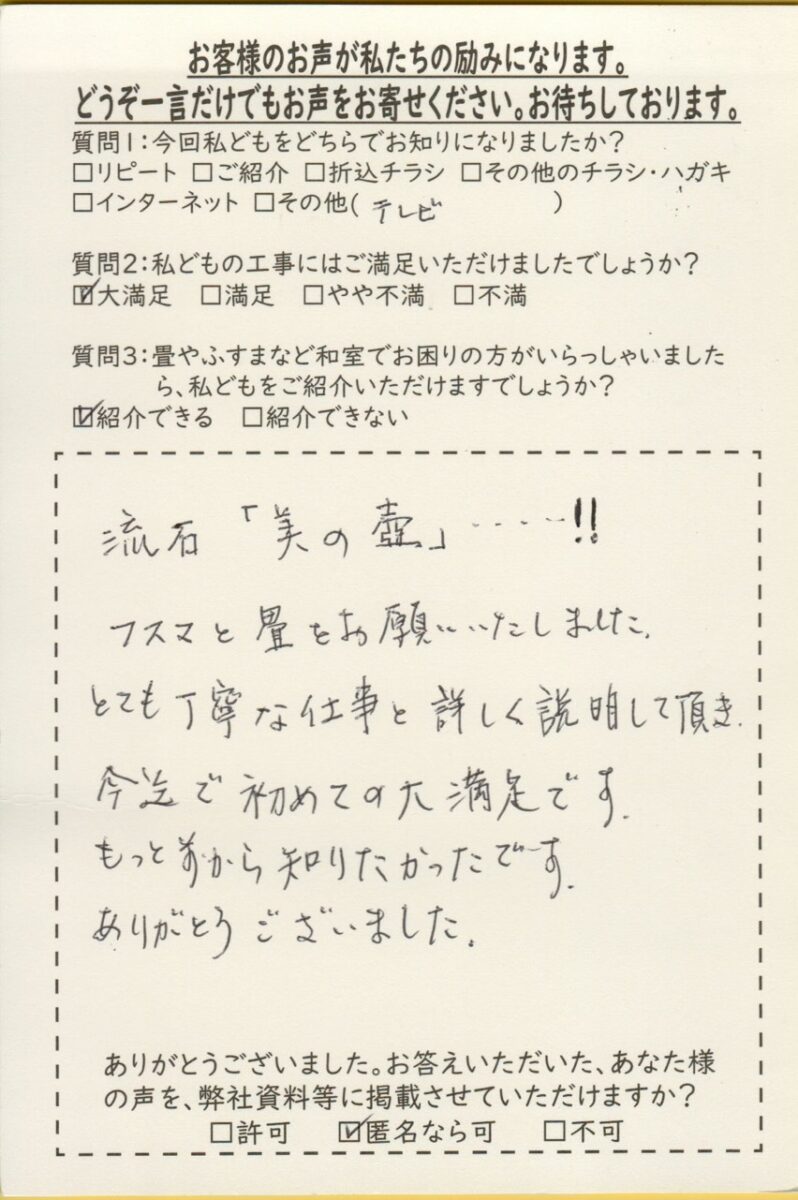 お客様のお声が私たちの励みになります。
どうぞ一言だけでもお声をお寄せください。お待ちしております。
質問1:今回私どもをどちらでお知りになりましたか?
□リピート □ご紹介 □折込チラシ □その他のチラシ・ハガキ
□インターネット □その他( テレビ )
質問2:私どもの工事にはご満足いただけましたでしょうか?
☑大満足 □満足 □やや不満 □不満
質問3:畳やふすまなど和室でお困りの方がいらっしゃいました
ら、私どもをご紹介いただけますでしょうか?
☑紹介できる □紹介できない
流石「美の壺」‥‥‥!!
フスマと畳をお願いいたしました。
とても丁寧な仕事と詳しく説明して頂き、
今迄で初めての大満足です。
もっと前から知りたかったです。
ありがとうございました。
ありがとうございました。お答えいただいた、あなた様
の声を、弊社資料等に掲載させていただけますか?
□許可 ☑匿名なら可 □不可